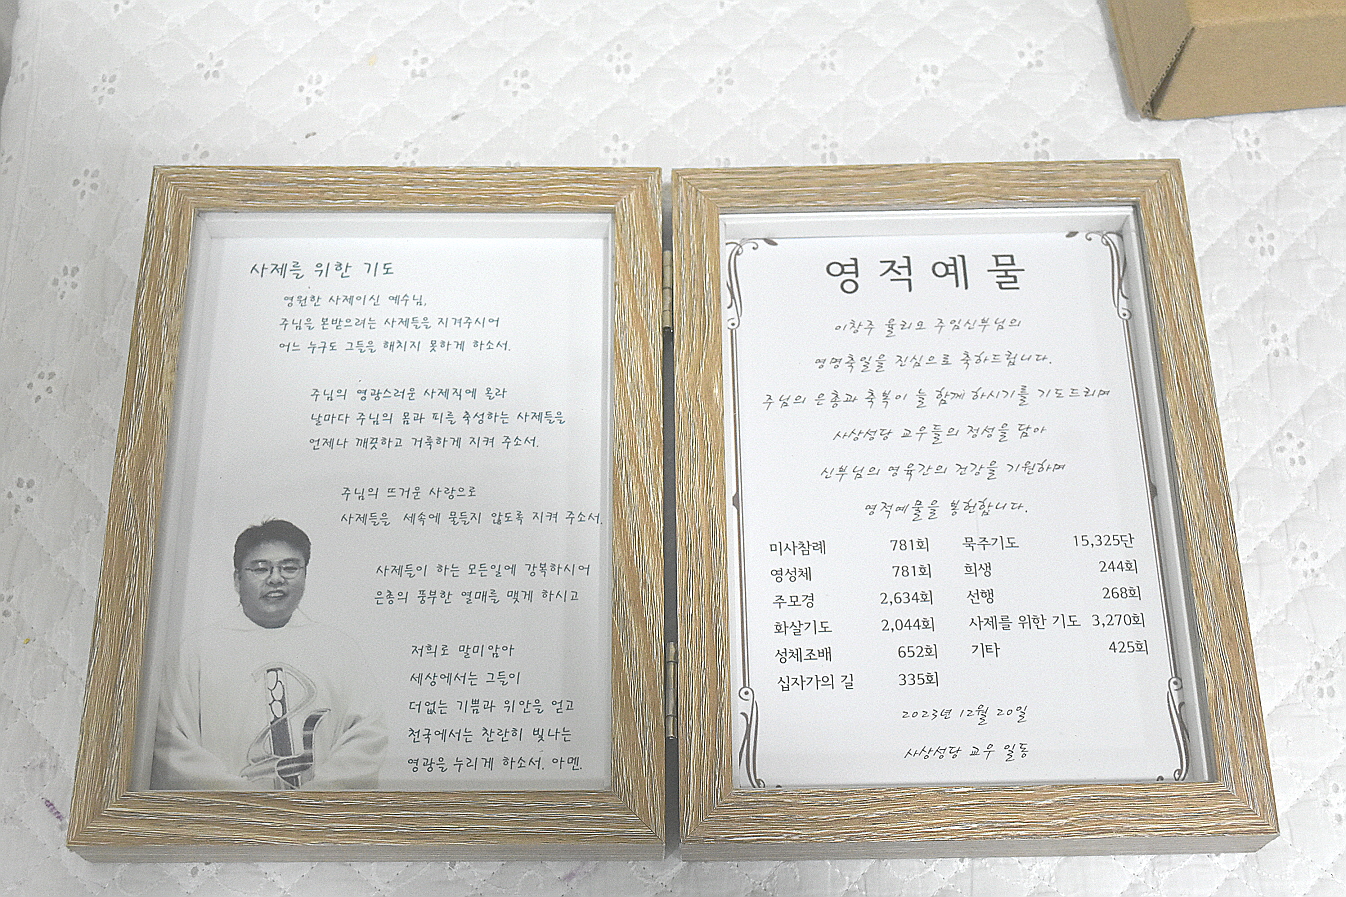 사제를 위한 기도
영원한 사제이신 예수님,
주님을 본받으려는 사제들을 지켜주시어
어느 누구도 그들을 해치지 못하게 하소서.
주님의 영광스러운 사제직에 올라
날마다 주님의 몸과 피를 축성하는 사제들을
언제나 깨끗하고 거룩하게 지켜 주소서.
주님의 뜨거운 사랑으로
사제들을 세속에 물들지 않도록 지켜 주소서.
사제들이 하는 모든일에 강복하시어
은총의 풍부한 열매를 맺게 하시고
저희로 말미암아
세상에서는 그들이
더없는 기쁨과 위안을 얻고
천국에서는 찬란히 빛나는
영광을 누리게 하소서. 아멘.
영적예물
이창주 율리모 주임신부님의
영명축일을 진심으로 축하드립니다.
주님의 은총과 축복이 늘 함께 하시기를 기도드리며
사상성당 교우들의 정성을 담아
신부님의 영육간의 건강을 기원하며
영적예물을 봉헌합니다.
미사참례 781회 묵주기도 15,325단
영성체 781회 희생 244회
주모경 2,634회 선행 268회
화살기도 2,044회 사제를 위한 기도 3,270회
성체조배 652회 기타 425회
십자가의 길 335회
2023년 12월 20일
사상성당 교우 일동